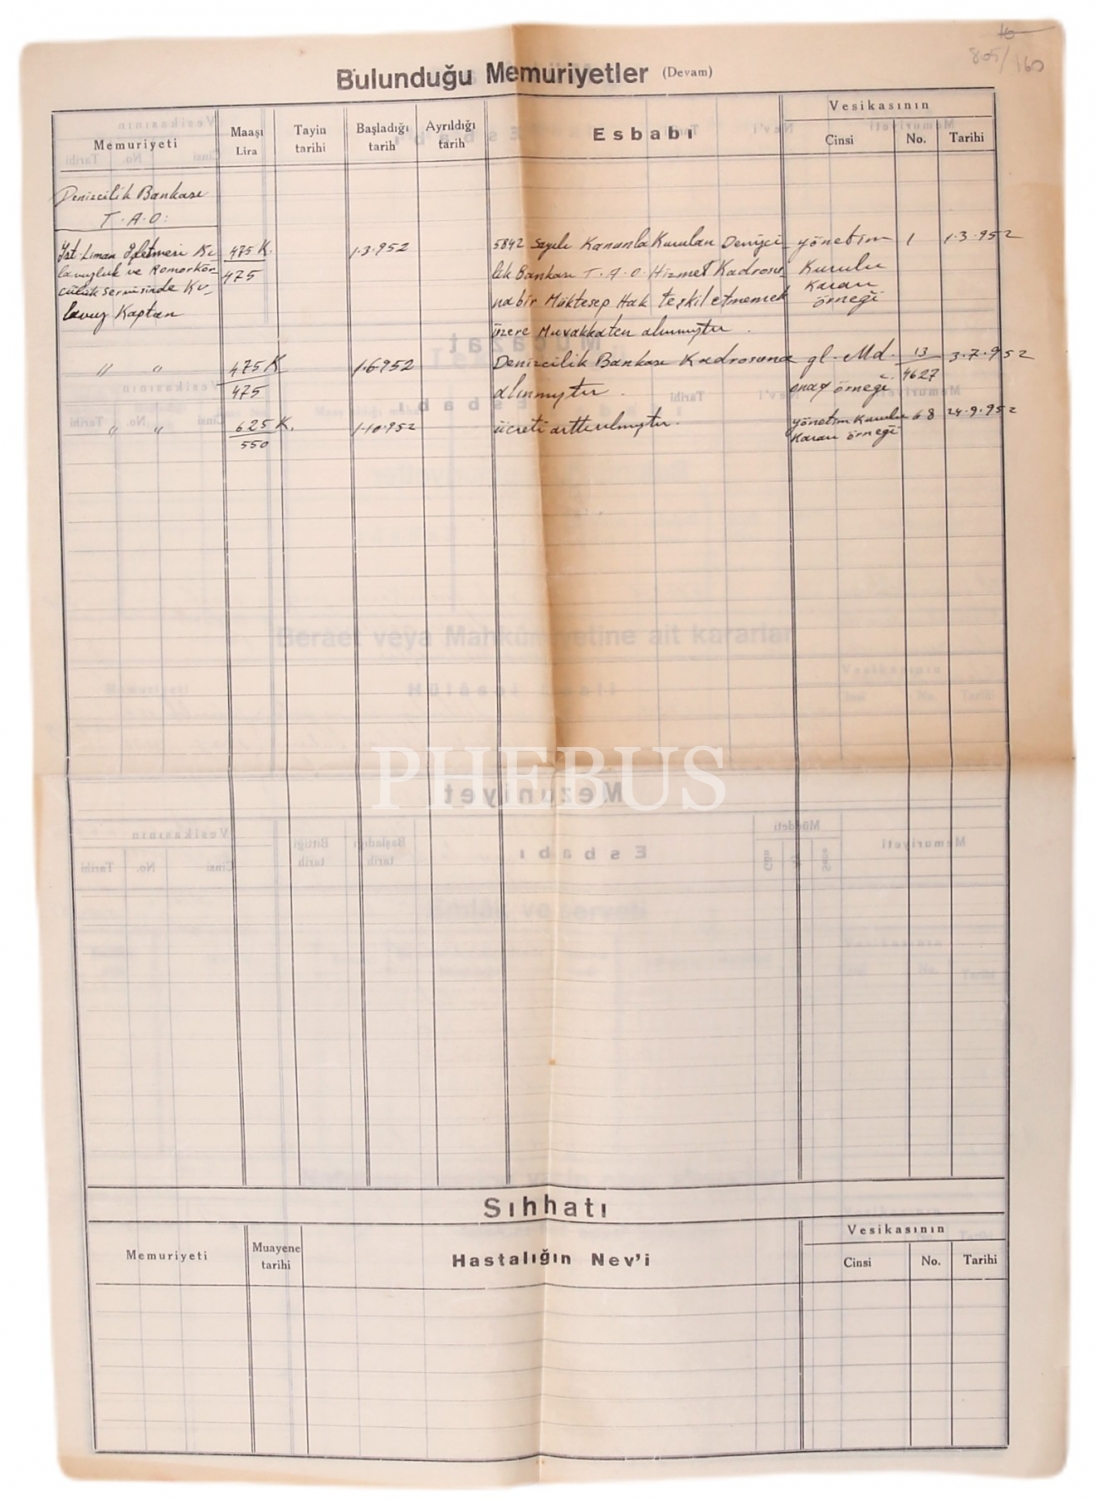 805/160
Bulunduğu Memuriyetler (Devam)
Memuriyeti
Maaşı
Lira
Tayin
tarihi
Başladığı
tarih
Ayrıldığı
tarih
Esbabı
Vesikasının
Cinsi
No.
Tarihi
Denizcilik Bankası
T.A.O:
İst. Liman İşletmesi Kı
lavuzluk ve Romorkör
cülük servisinde Kı
lavuz Kaptan
475 K.
475
1.3.952
5842 Sayılı Kanunla Kurulan Denizci
lik Bankası T.A.O Hizmet Kadrosu
na bir Müktesep Hak teşkil etmemek
üzere Muvakkaten alınmıştır.
yönetim
Kurulu
Kararı
örneği
1
1.3.952
" "
475 K
475
1.6.952
Denizcilik Bankası Kadrosuna
alınmıştır.
gl. Md.
onay örneği
13
4627
3.7.952
" "
625 K.
550
1.10.952
ücreti arttırılmıştır.
yönetim Kurulu
Kararı örneği
68
24.9.952
PHEBUS
Sıhhatı
Memuriyeti
Muayene
tarihi
Hastalığın Nev'i
Vesikasının
Cinsi
No.
Tarihi